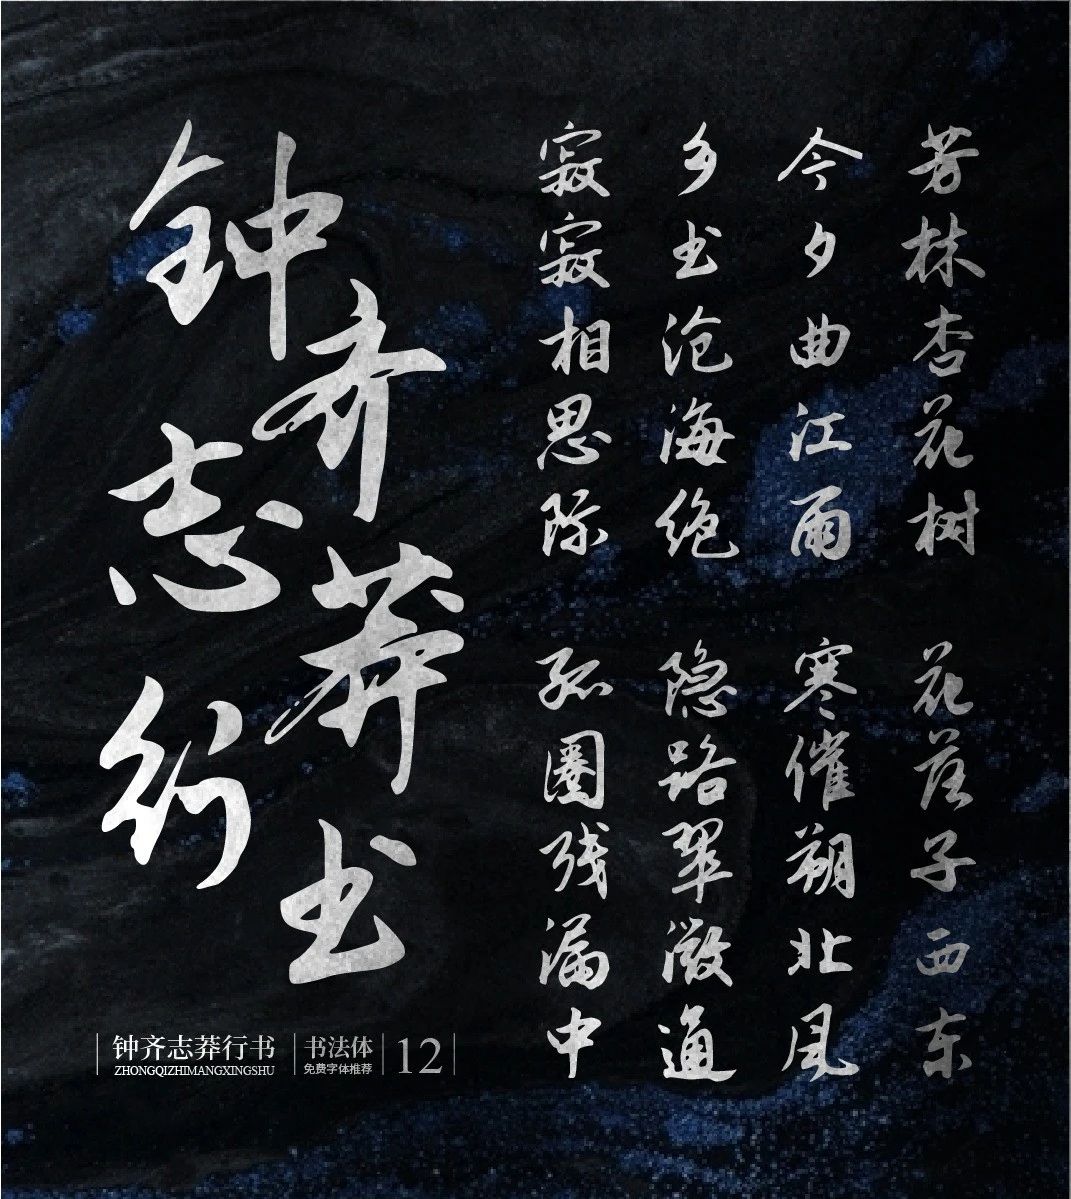 钟齐志莽行书
芳林杏花树
花落子西东
今夕曲江雨
寒催朔北风
乡书沧海绝
隐路翠微通
寂寂相思际
孤圈残漏中
钟齐志莽行书
ZHONGQIZHIMANGXINGSHU
书法体
免费字体推荐
12